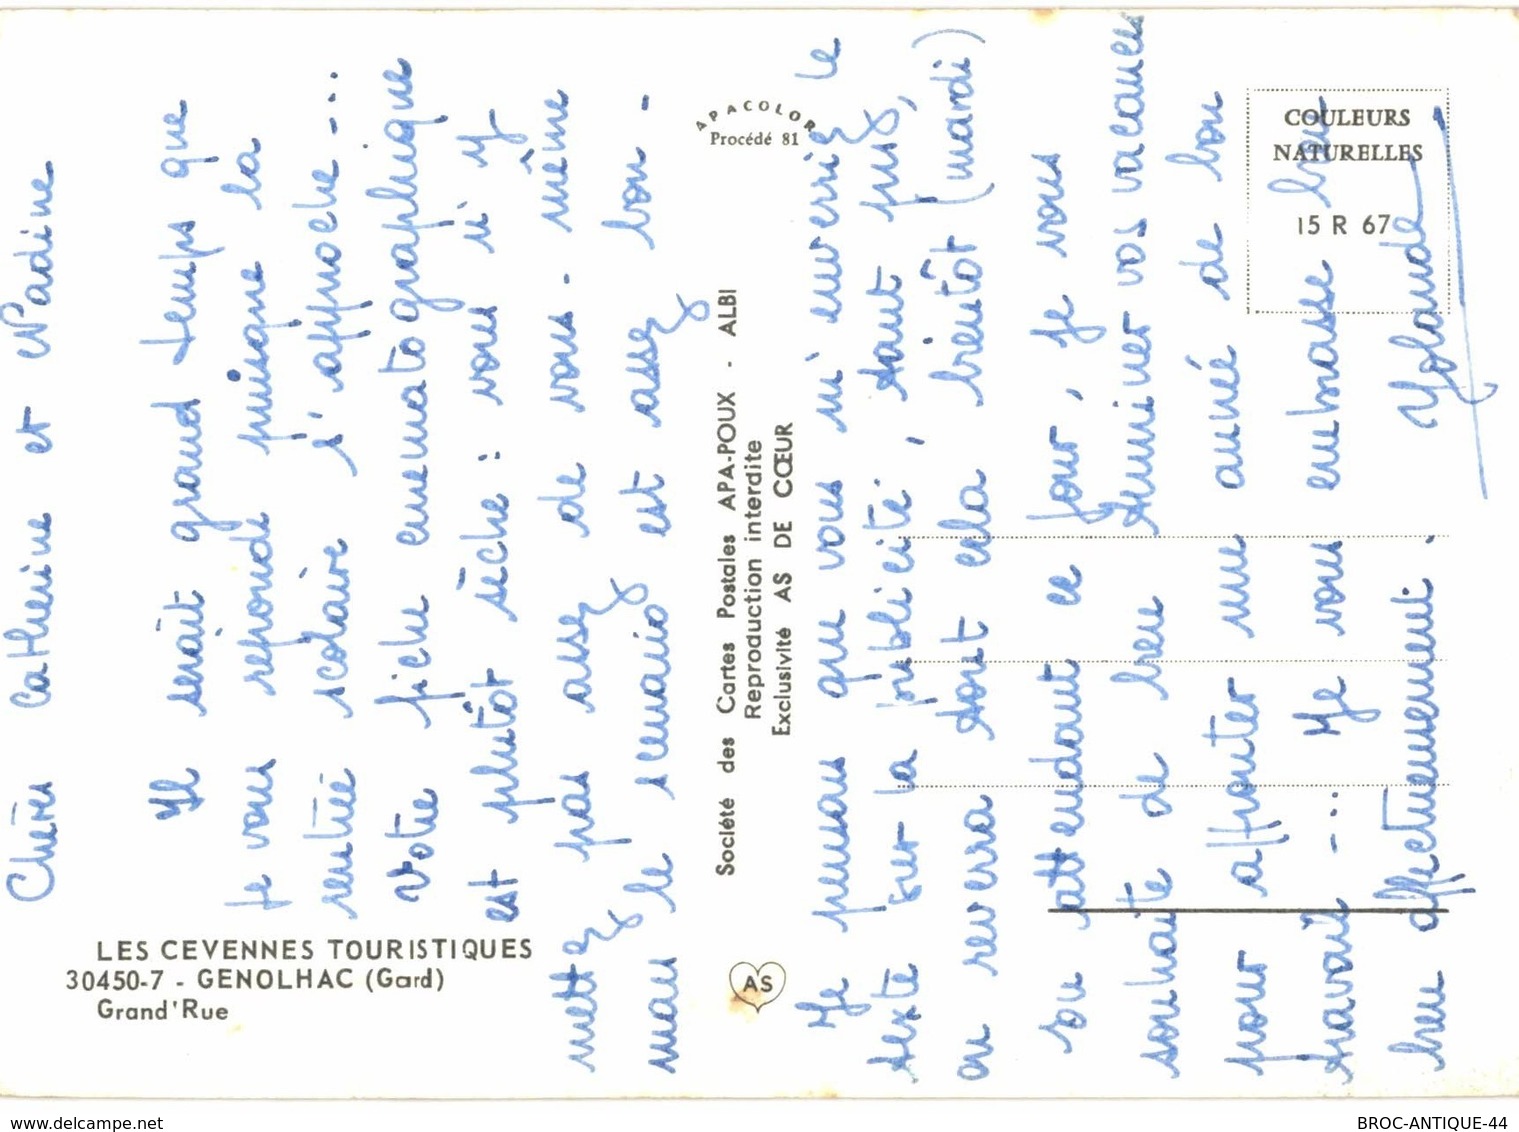 Chères Catherine et Nadine
Il serait grand temps que
je vous reponde puisque la
rentrée scolaire s'approche ...
Votre fiche cinematographique
est plutôt sèche : vous n'y
mettez pas assez de vous-même
mais le scenario est assez bon -
Je pensais que vous m'enverriez le
texte sur la publicité, tant pis,
on reverra tout cela bientôt (mardi)
En attendant ce jour, je vous
souhaite de bien terminer vos vacances
pour affronter une année de bon
travail ... Je vous embrasse bien
bien affectueusement.
Yolande
LES CEVENNES TOURISTIQUES
30450-7 - GENOLHAC (Gard)
Grand'Rue
APACOLOR
Procédé 81
Société des Cartes Postales APA-POUX - ALBI
Reproduction interdite
Exclusivité AS DE CŒUR
AS
COULEURS
NATURELLES
15 R 67
delcampe.net
BROC-ANTIQUE-44